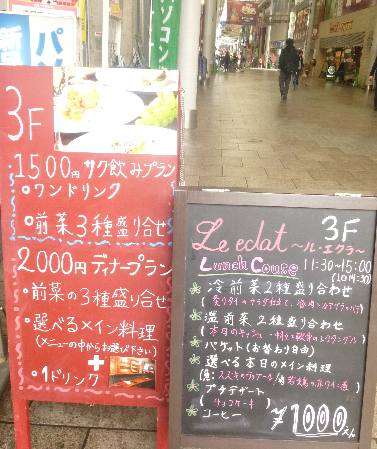 パソコン
3F
1500円 サク飲みプラン
・ワンドリンク
・前菜3種盛り合せ
2,000円 ディナープラン
・前菜の3種盛り合せ
・選べるメイン料理
(メニューの中からお選び下さい)
+
・1ドリンク
3F
Le eclat ～ル・エクラ～
Lunch Couse 11:30~15:00
(Lo14:30)
冷前菜2種盛り合わせ
温前菜2種盛り合わせ
バゲット(お替わり自由)
選べる本日のメイン料理
プチデザート
(チョコケーキ)
コーヒー
¥1000